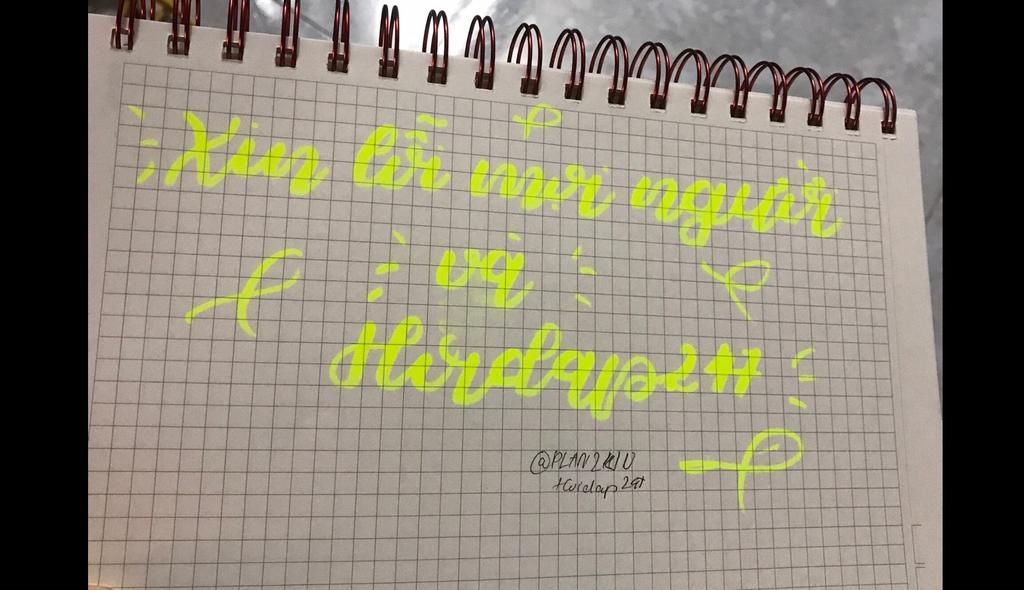 Xin lỗi mọi người
và
Hoidap247
@PLAN2K1U
Hoidap247